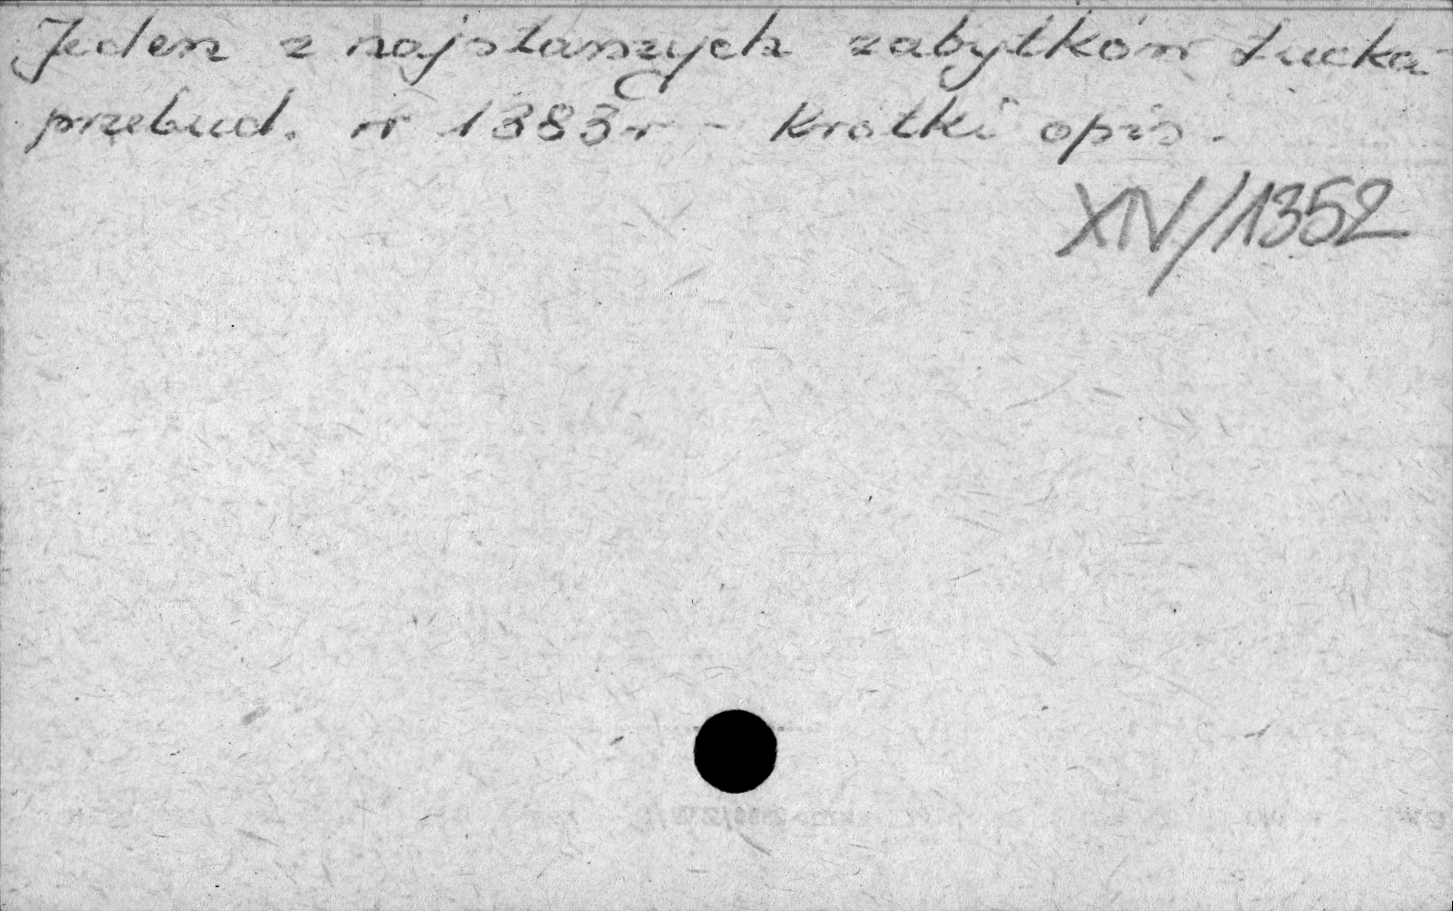 Jeden z najstarszych zabytków Łucka
przebud. w 1383 r - krótki opis.
XIV/1352